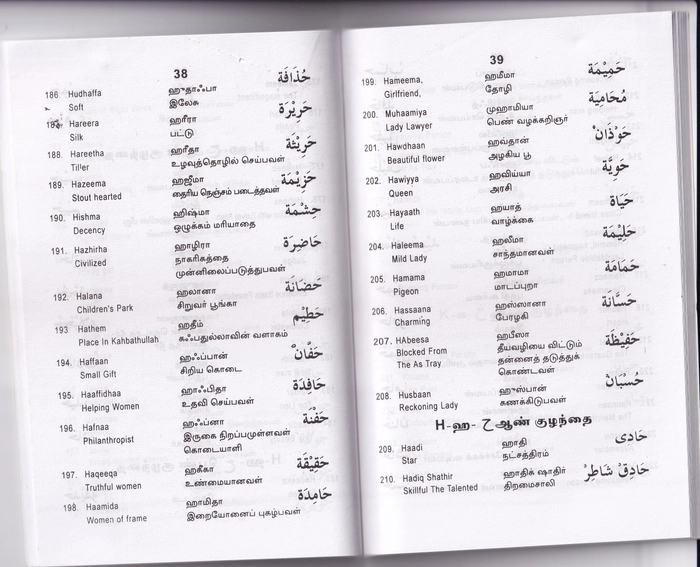 38
186. Hudhaffa ஹுதாஃபா حُذَافَة
Soft இலேசு
Hareera ஹரீரா حَرِيْرَة
Silk பட்டு
188. Hareetha ஹரீதா حَرِيْثَة
Tiller உழவுத்தொழில் செய்பவள்
189. Hazeema ஹஜீமா حَزِيْمَة
Stout hearted தைரிய நெஞ்சம் படைத்தவள்
190. Hishma ஹிஷ்மா حِشْمَة
Decency ஒழுக்கம் மரியாதை
191. Hazhirha ஹாழிரா حَاضِرَة
Civilized நாகரிகத்தை
முன்னிலைப்படுத்துபவள்
192. Halana ஹலானா حَضَانَة
Children's Park சிறுவர் பூங்கா
193 Hathem ஹதீம் حَطِيْم
Place In Kahbathullah கஃபதுல்லாவின் வளாகம்
194. Haffaan ஹஃப்பான் حَفَّانْ
Small Gift சிறிய கொடை
195. Haaffidhaa ஹாஃபிதா حَافِدَة
Helping Women உதவி செய்பவள்
196. Hafnaa ஹஃப்னா حَفْنَة
Philanthropist இருகை நிறப்பமுள்ளவள்
கொடையாளி
197. Haqeeqa ஹகீகா حَقِيْقَة
Truthful women உண்மையானவள்
198. Haamida ஹாமிதா حَامِدَة
Women of frame இறையோனைப் புகழ்பவள்
39
199. Hameema, ஹமீமா حَمِيْمَة
Girlfriend, தோழி
200. Muhaamiya முஹாமியா مُحَامِيَة
Lady Lawyer பெண் வழக்கறிஞர்
201. Hawdhaan ஹவ்தான் حَوْذَانْ
Beautiful flower அழகிய பூ
202. Hawiyya ஹவிய்யா حَوِيَّة
Queen அரசி
203. Hayaath ஹயாத் حَيَاة
Life வாழ்க்கை
204. Haleema ஹலீமா حَلِيْمَة
Mild Lady சாந்தமானவள்
205. Hamama ஹமாமா حَمَامَة
Pigeon மாடப்புறா
206. Hassaana ஹஸ்ஸானா حَسَّانَة
Charming பேரழகி
207. HAbeesa ஹபீஸா حَفِيْظَة
Blocked From தீயவழியை விட்டும்
The As Tray தன்னைத் தடுத்துக்
கொண்டவள்
208. Husbaan ஹுஸ்பான் حُسْبَانْ
Reckoning Lady கணக்கிடுபவள்
H-ஹ- ح ஆண் குழந்தை
209. Haadi ஹாதி حَادِى
Star நட்சத்திரம்
210. Hadiq Shathir ஹாதிக் ஷாதிர் حَاذِقْ شَاطِرْ
Skillful The Talented திறமைசாலி